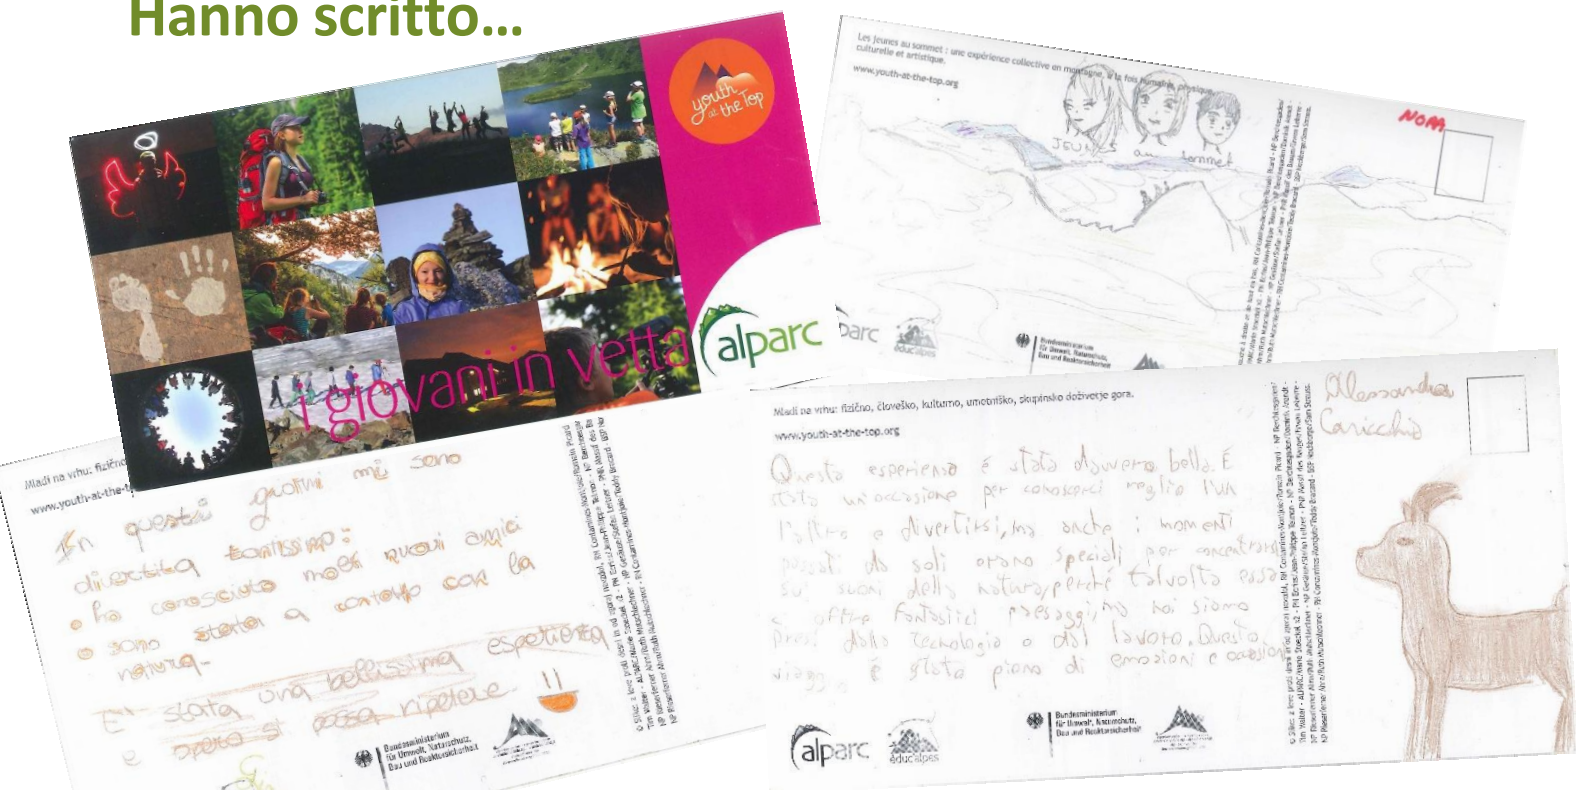 Hanno scritto...
youth
at the Top
i giovani in vetta
alparc
Les jeunes au sommet : une expérience collective en montagne, à la fois humaine, physique,
culturelle et artistique.
www.youth-at-the-top.org
JEUNES au sommet
NOM
parc
éduc'alpes
Bundesministerium
für Umwelt, Naturschutz,
Bau und Reaktorsicherheit
Mladi na vrhu: fizično
www.youth-at-the-t
In questi giorni mi sono
divertita tantissimo:
• ho conosciuto molti nuovi amici
• sono stata a contatto con la
natura-
E' stata una bellissima esperienza
e spero si possa ripetere
Bundesministerium
für Umwelt, Naturschutz,
Bau und Reaktorsicherheit
Mladi na vrhu: fizično, človeško, kulturno, umetniško, skupinsko doživetje gora.
www.youth-at-the-top.org
Questa esperienza è stata davvero bella. È
stata un'occasione per conoscerci meglio l'un
l'altro e divertirsi, ma anche i momenti
passati da soli erano speciali per concentrarsi
sui suoni della natura, perché talvolta essa
ci offre fantastici paesaggi, ma noi siamo
presi dalla tecnologia o dal lavoro. Questo
viaggio è stato pieno di emozioni e occasioni
Alessandra
Caricchio
alparc
éduc'alpes
Bundesministerium
für Umwelt, Naturschutz,
Bau und Reaktorsicherheit